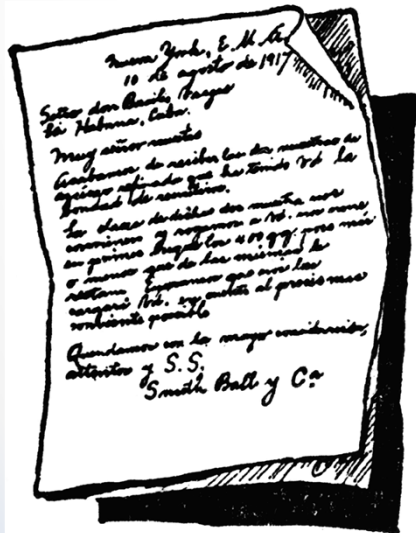 Nueva York, E.U.A.
10 de agosto de 1917
Señor don Basilio Vargas
La Habana, Cuba.
Muy señor nuestro
Acabamos de recibir las dos muestras de
azúcar refinado que ha tenido Vd la
bondad de remitirnos.
La clase de dichas dos muestras nos
conviene y rogamos a Vd. nos envíe
en primer buque los 400 qq poco más
o menos que de las mismas le
restan. Esperamos que nos las
cargará Vd. en cuenta al precio más
conveniente posible
Quedamos con la mayor consideración,
atentos y S.S.
Smith Ball y Cª